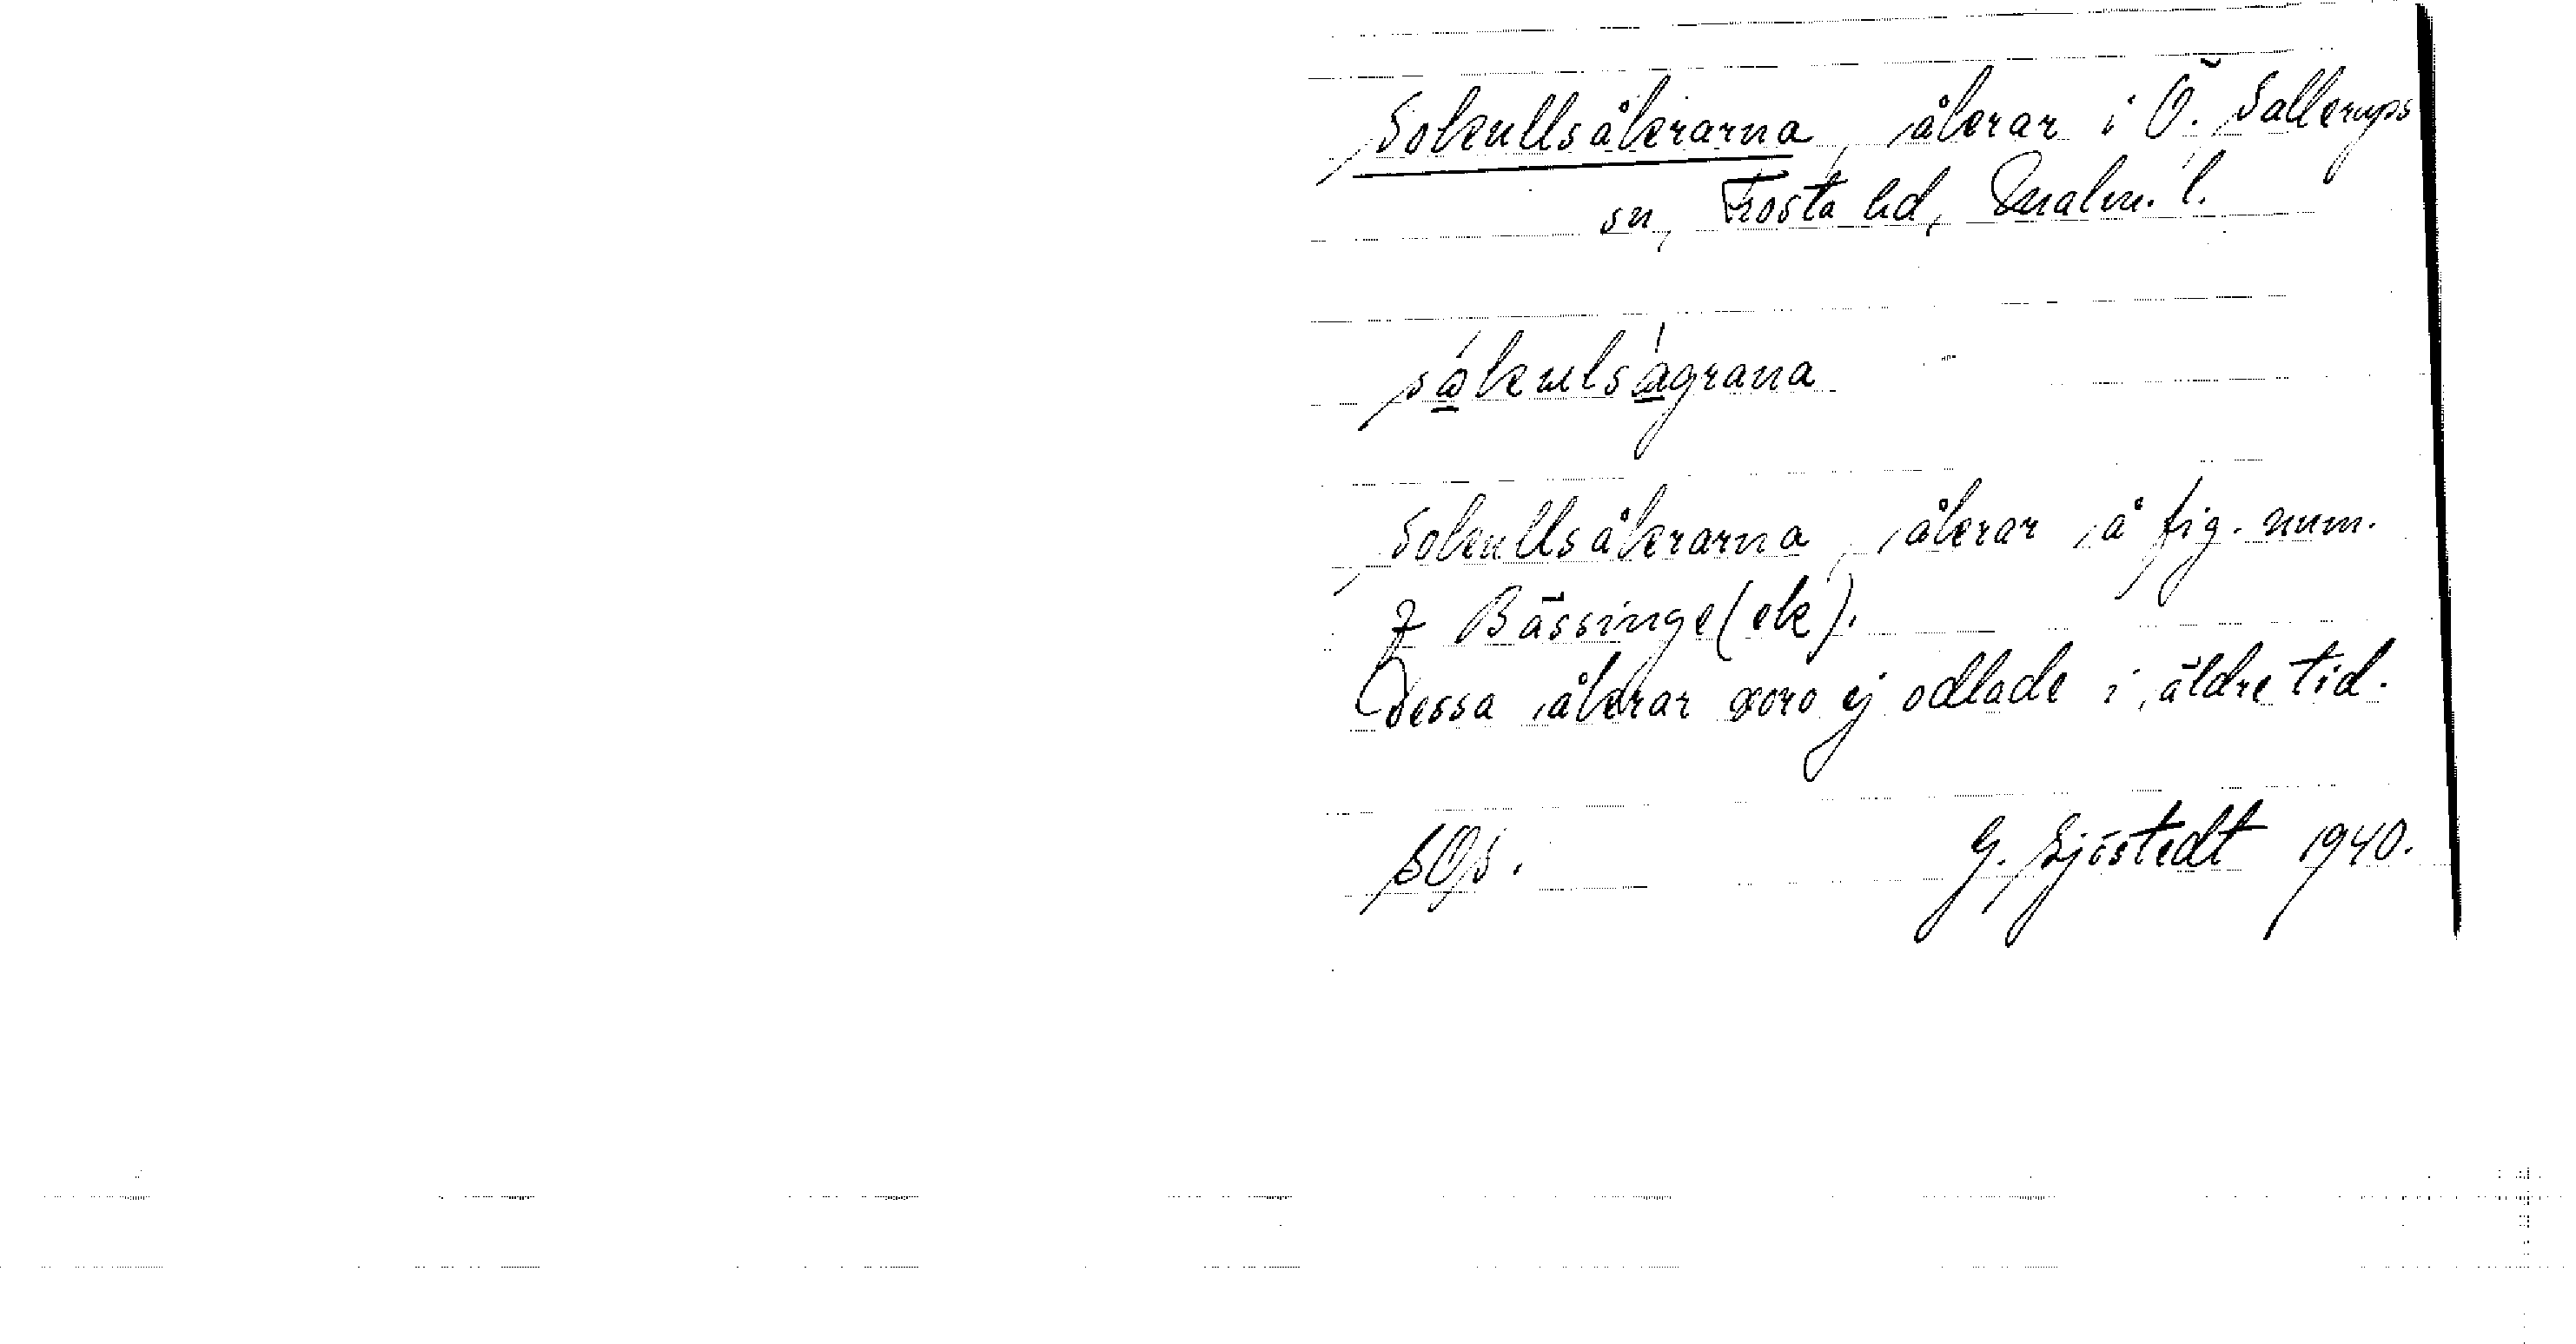 Sokullsåkrarna, åkrar i Ö. Sallerups
sn, Frosta hd, Malm. l.
såkulsågrana
Sokullsåkrarna, åkrar å fig. num.
7 Bässinge (ek).
Dessa åkrar voro ej odlade i äldre tid.
SOS. G. Sjöstedt 1940.